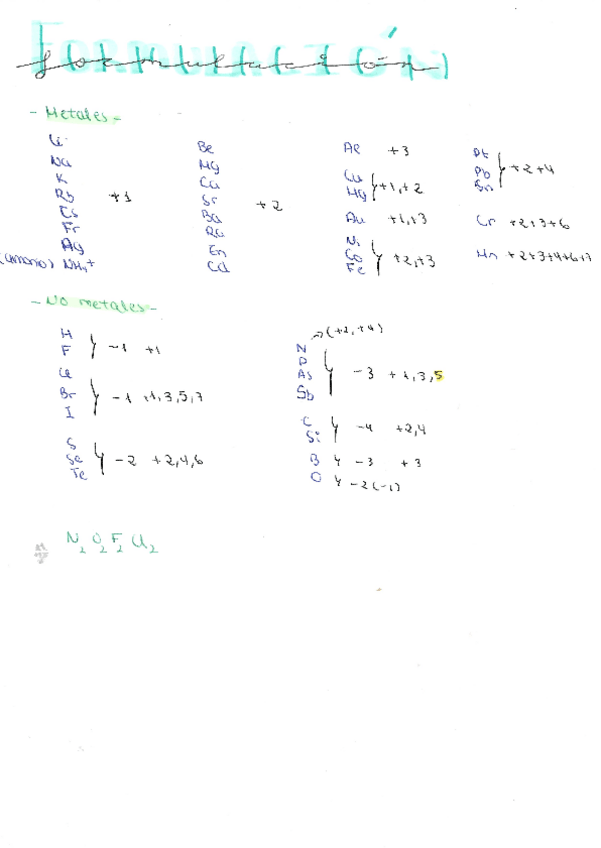 FORMULACIÓN
formulación
- Metales -
Li
Na
K
Rb
Cs
Fr
Ag
(amonio) NH4+
+1
Be
Mg
Ca
Sr
Ba
Ra
Zn
Cd
+2
Al +3
Cu
Hg
+1,+2
Au +1,+3
Ni
Co
Fe
+2,+3
Pt
Pb
Sn
+2+4
Cr +2+3+6
Mn +2+3+4+6+7
- No metales -
H
F
-1 +1
Cl
Br
I
-1 +1,3,5,7
S
Se
Te
-2 +2,4,6
→(+2,+4)
N
P
As
Sb
-3 +1,3,5
C
Si
-4 +2,4
B -3 +3
O -2(-1)
N2 O2 F2 Cl2